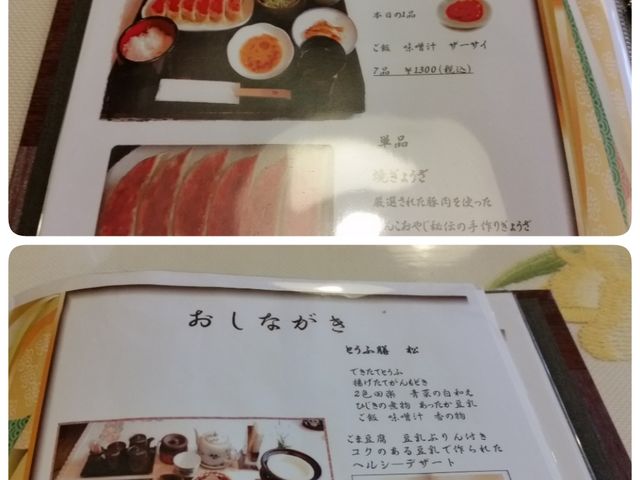 本日の1品
ご飯 味噌汁 ザーサイ
7品 ￥1300(税込)
単品
焼ぎょうざ
厳選された豚肉を使った
んこおやじ秘伝の手作りぎょうざ
おしながき
とうふ膳 松
できたてとうふ
揚げたてがんもどき
2色田楽 青菜の白和え
ひじきの煮物 あったか豆乳
ご飯 味噌汁 香の物
ごま豆腐 豆乳ぷりん付き
コクのある豆乳で作られた
ヘルシーデザート